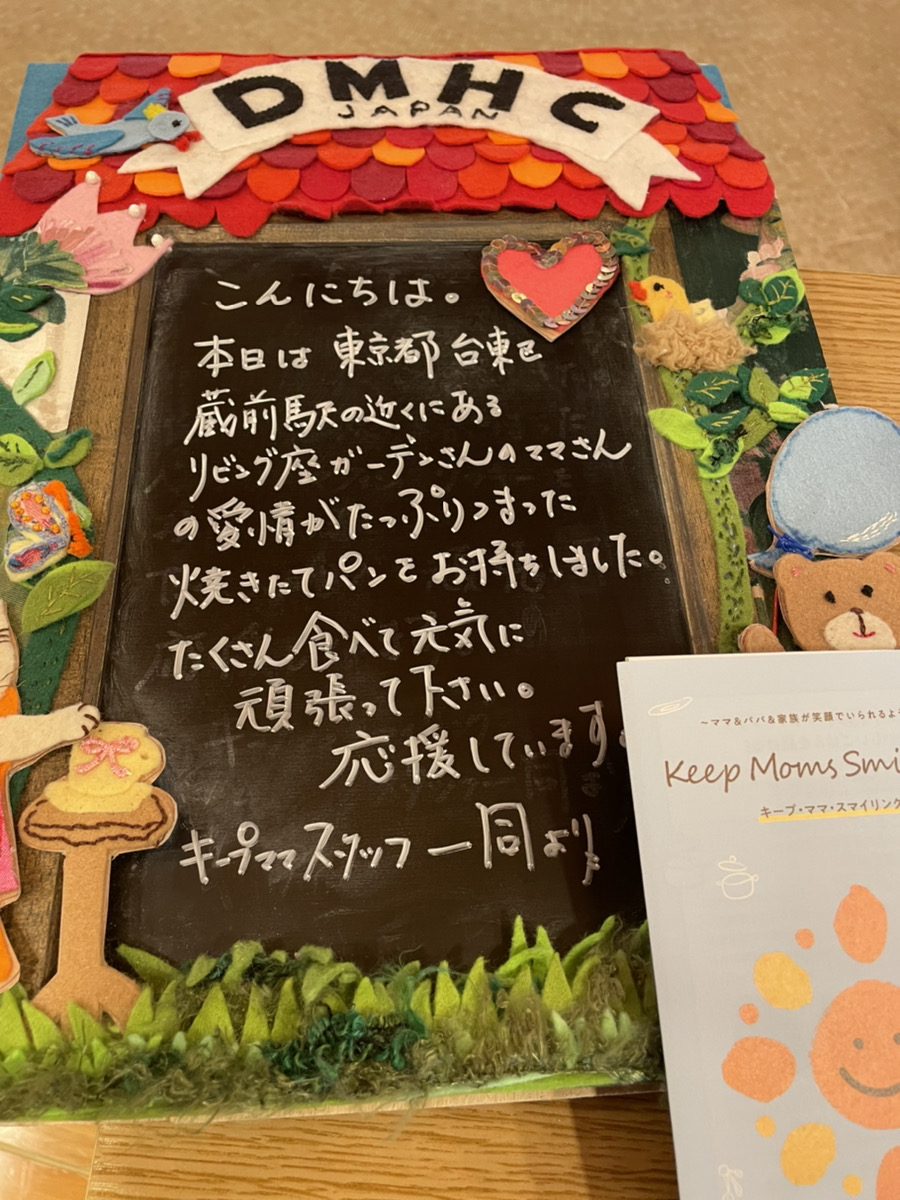 DMHC
JAPAN
こんにちは。
本日は 東京都 台東区
蔵前駅の近くにある
リビング座ガーデンさんのママさん
の愛情がたっぷりつまった
焼きたてパンをお持ちしました。
たくさん食べて元気に
頑張って下さい。
応援しています。
キープママスタッフ一同より
～ママ&パパ&家族が笑顔でいられるよ
Keep Moms Smi
キープ・ママ・スマイリング